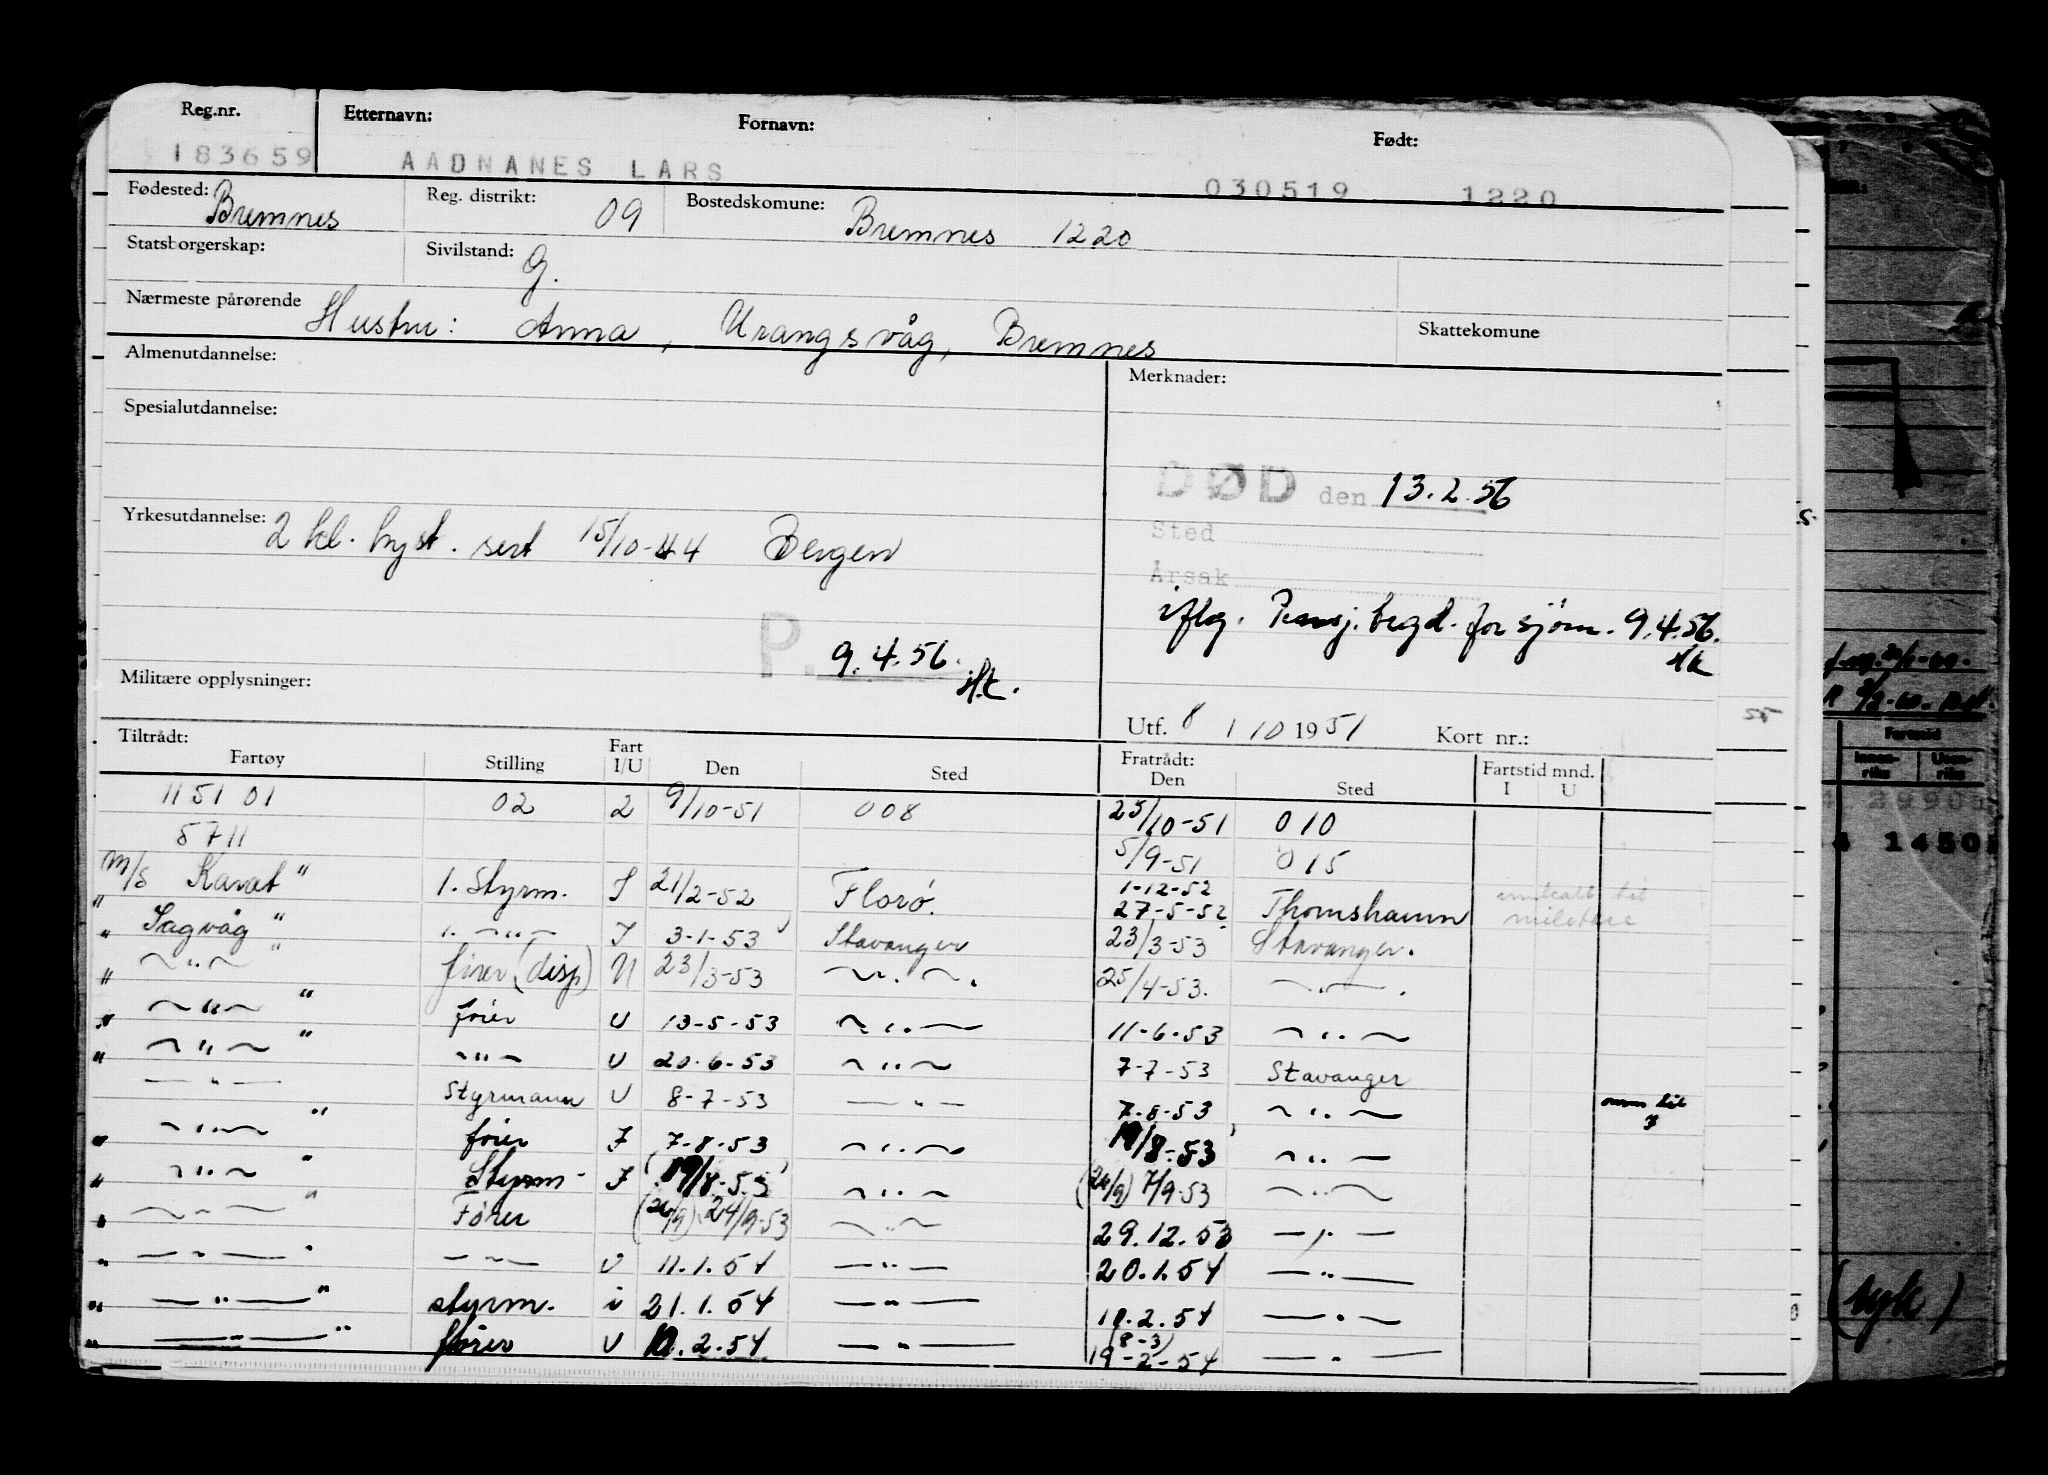 Reg.nr. Etternavn: Fornavn: Født:
183659 AADNANES LARS 030519 1220
Fødested: Bremnes Reg. distrikt: 09 Bostedskomune: Bremnes 1220
Statsborgerskap: Sivilstand: G.
Nærmeste pårørende Hustru: Anna, Urangsvåg, Bremnes Skattekomune
Almenutdannelse: Merknader:
Spesialutdannelse:
DØD den 13.2.56
Yrkesutdannelse: 2 kl. kyst. sert 15/10-44 Bergen
Sted
Årsak
iflg. Pensj. begd. for sjøm. 9.4.56.
P. 9.4.56. H.k.
Militære opplysninger:
Utf. 8 / 10 1951 Kort nr.:
Tiltrådt: Fratrådt:
Fartøy Stilling Fart I/U Den Sted Den Sted Fartstid mnd. I U
11 51 01 02 2 9/10-51 008 25/10-51 010
5711 5/9-51 015
m/s Karat " 1. Styrm. I 21/2-52 Florø. 1-12-52 27-5-52 Thomshamn
" Sagvåg " 1. ~"~ I 3-1-53 Stavanger 23/3-53 Stavanger.
" ~"~ " fører (disp) U 23/3-53 ~"~. 25/4-53. ~"~.
" ~"~ " fører U 13-5-53 ~"~ 11-6-53 ~"~
" ~"~ " ~"~ U 20-6-53 ~"~ 7-7-53 Stavanger
—"— Styrmann U 8-7-53 —"— 7-8-53 ~"~
" ~"~ " fører I 7-8-53 ~"~ 19/8-53 ~"~
" ~"~ " Styrm- I (19/8-53) ~"~ (24/9) 7/9-53 ~"~
" ~"~ " Fører (26/9) 24/9-53 ~"~ 29.12.53 —"—
" —"— " —"— U 11.1.54 —"— 20.1.54 —"—
" —"— " styrm. i 21.1.54 —"— 10.2.54 —"—
" —"— " fører U 10.2.54 —"— (8-3) 19-2-54 —"—
(syk)